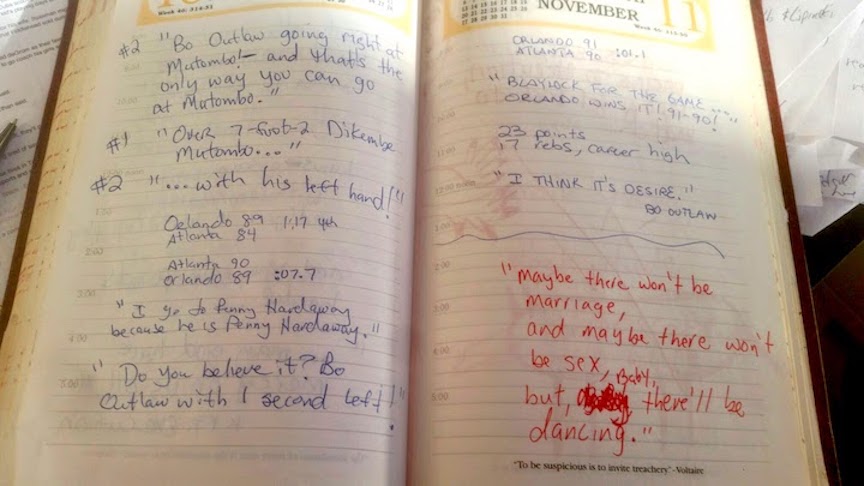 Week 45: 314-51
#2 "Bo Outlaw going right at
Mutombo!— and that's the
only way you can go
at Mutombo."
#1 "Over 7-foot-2 Dikembe
Mutombo..."
#2 "...with his left hand!"
Orlando 89 1:17 4th
Atlanta 84
Atlanta 90
Orlando 89 :07.7
"I go to Penny Hardaway
because he is Penny Hardaway."
"Do you believe it? Bo
Outlaw with 1 second left!"
NOVEMBER 11
ORLANDO 91 :01.1
ATLANTA 90
"BLAYLOCK FOR THE GAME...
ORLANDO WINS IT! 91-90!"
23 points
17 rebs, career high
"I THINK IT'S DESIRE."
BO OUTLAW
"maybe there won't be
marriage,
and maybe there won't
be sex, Baby,
but, there'll be
dancing."
"To be suspicious is to invite treachery" -Voltaire